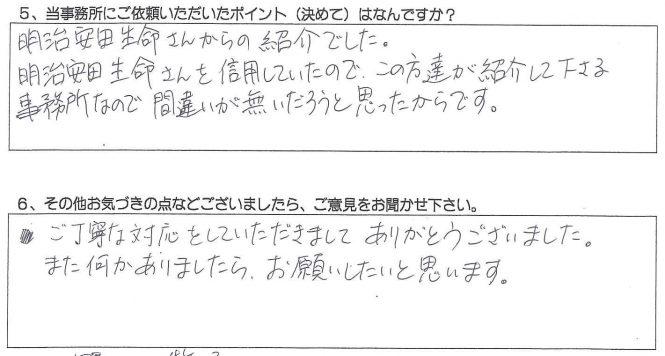 5、当事務所にご依頼いただいたポイント（決めて）はなんですか？
明治安田生命さんからの紹介でした。
明治安田生命さんを信用していたので、この方達が紹介して下さる
事務所なので間違いが無いだろうと思ったからです。
6、その他お気づきの点などございましたら、ご意見をお聞かせ下さい。
ご丁寧な対応をしていただきまして ありがとうございました。
また何かありましたら、お願いしたいと思います。